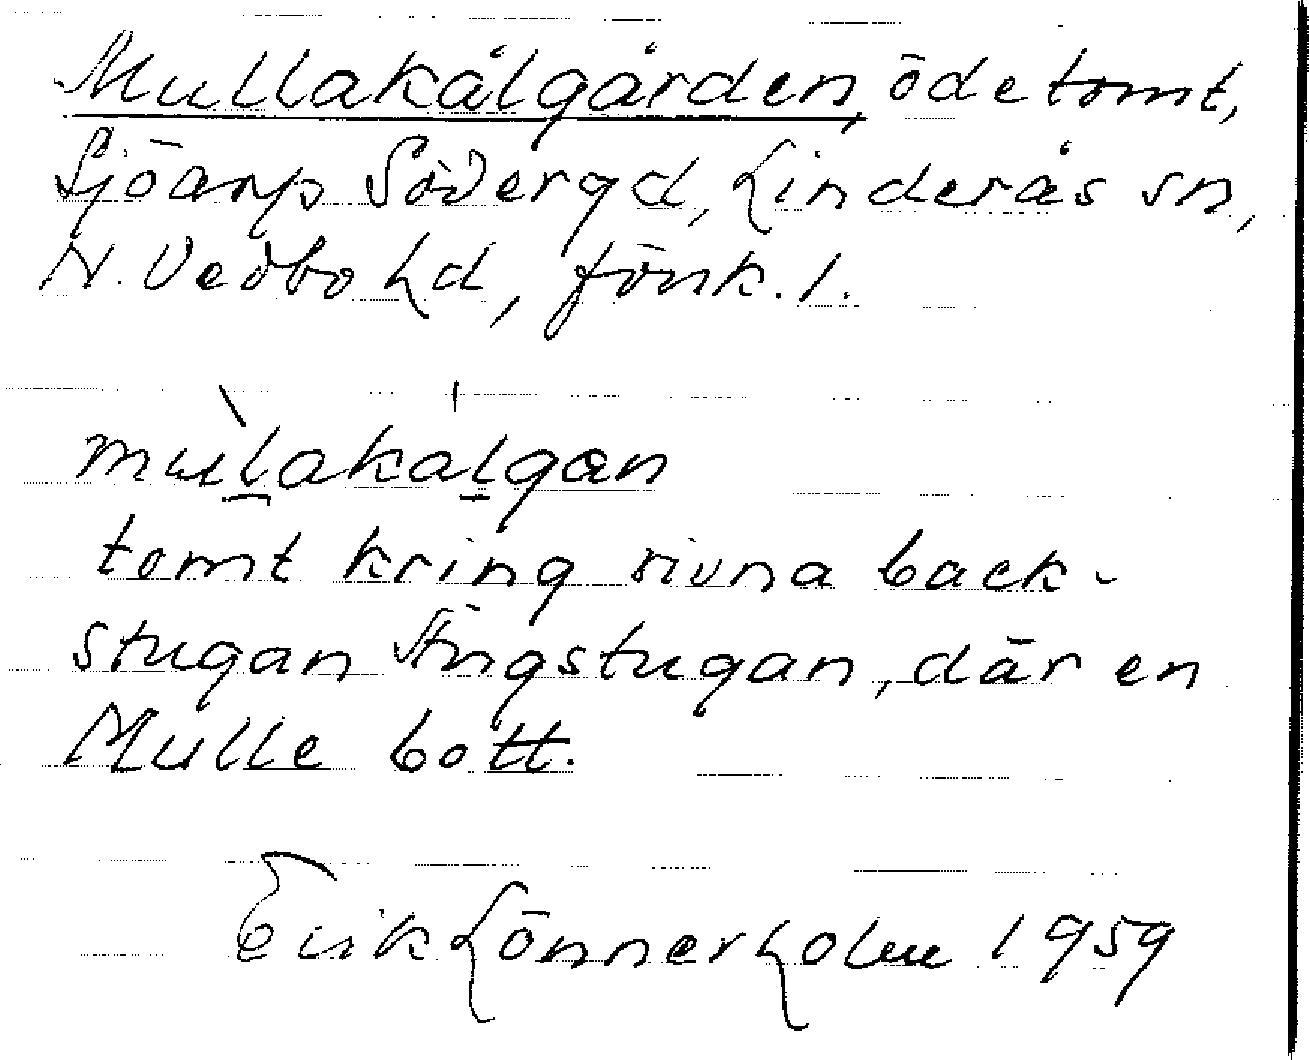 Mullakålgården, ödetomt,
Sjöarp Södergd, Linderås sn,
N. Vedbo hd, Jönk. l.
mùl̲akál̲gan
tomt kring rivna back-
stugan Ängstugan, där en
Mulle bott.
Erik Lönnerholm 1959